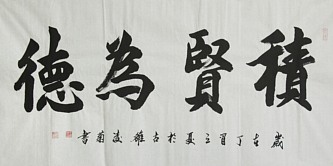 積賢為德
歲在丁酉夏於古雒凌書